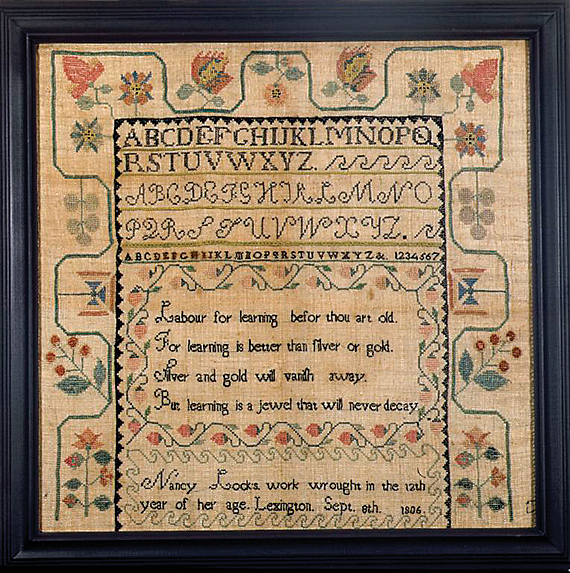 ABCDEFGHIJKLMNOPQ
RSTUVWXYZ.
ABCDEFGHIKLMNO
PQRSTUVWXYZ.
ABCDEFGHIJKLMNOPQRSTUVWXYZ&. 1234567
Labour for learning befor thou art old.
For learning is better than ſilver or gold.
Silver and gold will vaniſh away.
But learning is a jewel that will never decay
Nancy Locks. work wrought in the 12th
year of her age. Lexington. Sept. 8th. 1806.